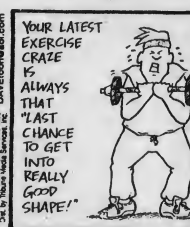 YOUR LATEST
EXERCISE
CRAZE
IS
ALWAYS
THAT
"LAST
CHANCE
TO GET
INTO
REALLY
GOOD
SHAPE!"
by Tribune Media Services, Inc.